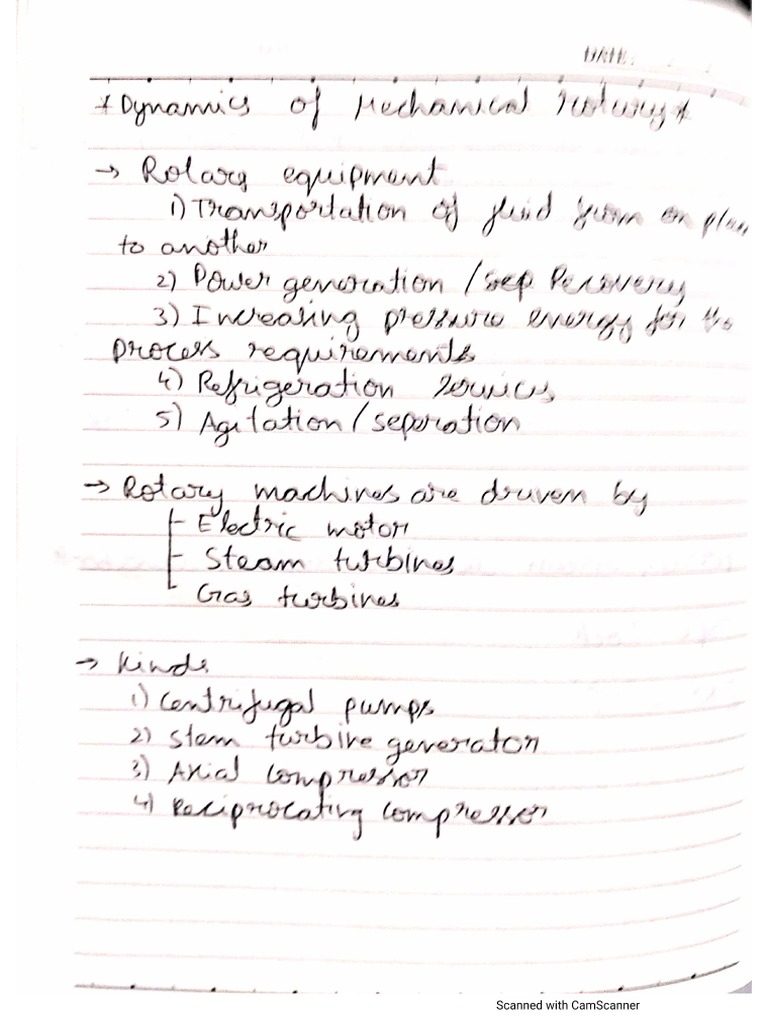 DATE:
* Dynamics of Mechanical *
→ Rotary equipment
1) Transportation of fluid from on
to another
2) Power generation / Recovery
3) Increasing pressure energy for the
process requirements
4) Refrigeration services
5) Agitation / seperation
→ Rotary machines are driven by
Electric motor
Steam turbines
Gas turbines
→ Kinds
1) Centrifugal pumps
2) Stem turbine generator
3) Axial compressor
4) Reciprocating compressor
Scanned with CamScanner